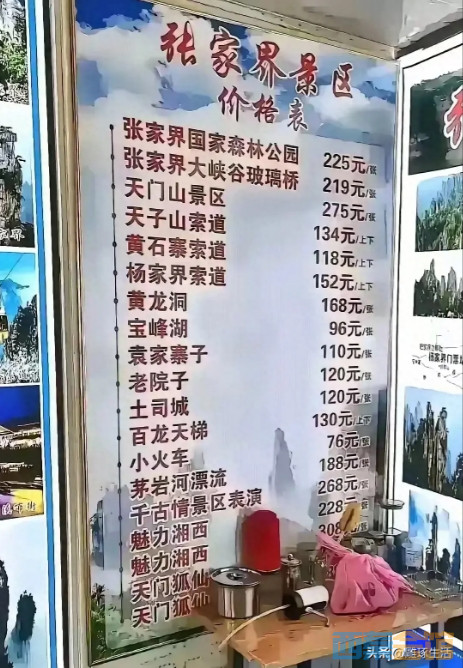 张家界景区
价格表
张家界国家森林公园 225元/张
张家界大峡谷玻璃桥 219元/张
天门山景区 275元/张
天子山索道 134元/上下
黄石寨索道 118元/上下
杨家界索道 152元/上下
黄龙洞 168元/张
宝峰湖 96元/张
袁家寨子 110元/张
老院子 120元/张
土司城 120元/张
百龙天梯 130元/上下
小火车 76元/张
茅岩河漂流 188元/张
千古情景区表演 268元/张
魅力湘西 228元/张
魅力湘西 308
天门狐仙
天门狐仙
头条